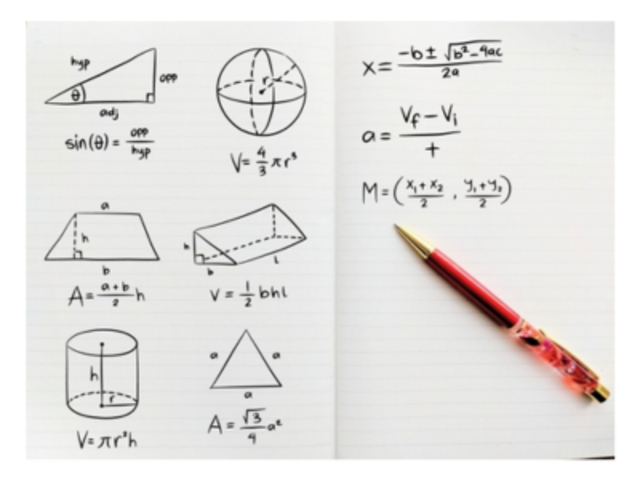 hyp
opp
θ
adj
sin(θ) = opp/hyp
r
V = 4/3 πr³
a
h
b
A = a+b/2 h
h
b
l
V = 1/2 bhl
h
r
V = πr²h
a
a
a
A = √3/4 a²
x = -b ± √b²-4ac / 2a
a = Vf - Vi / t
M = (x₁+x₂/2 , y₁+y₂/2)